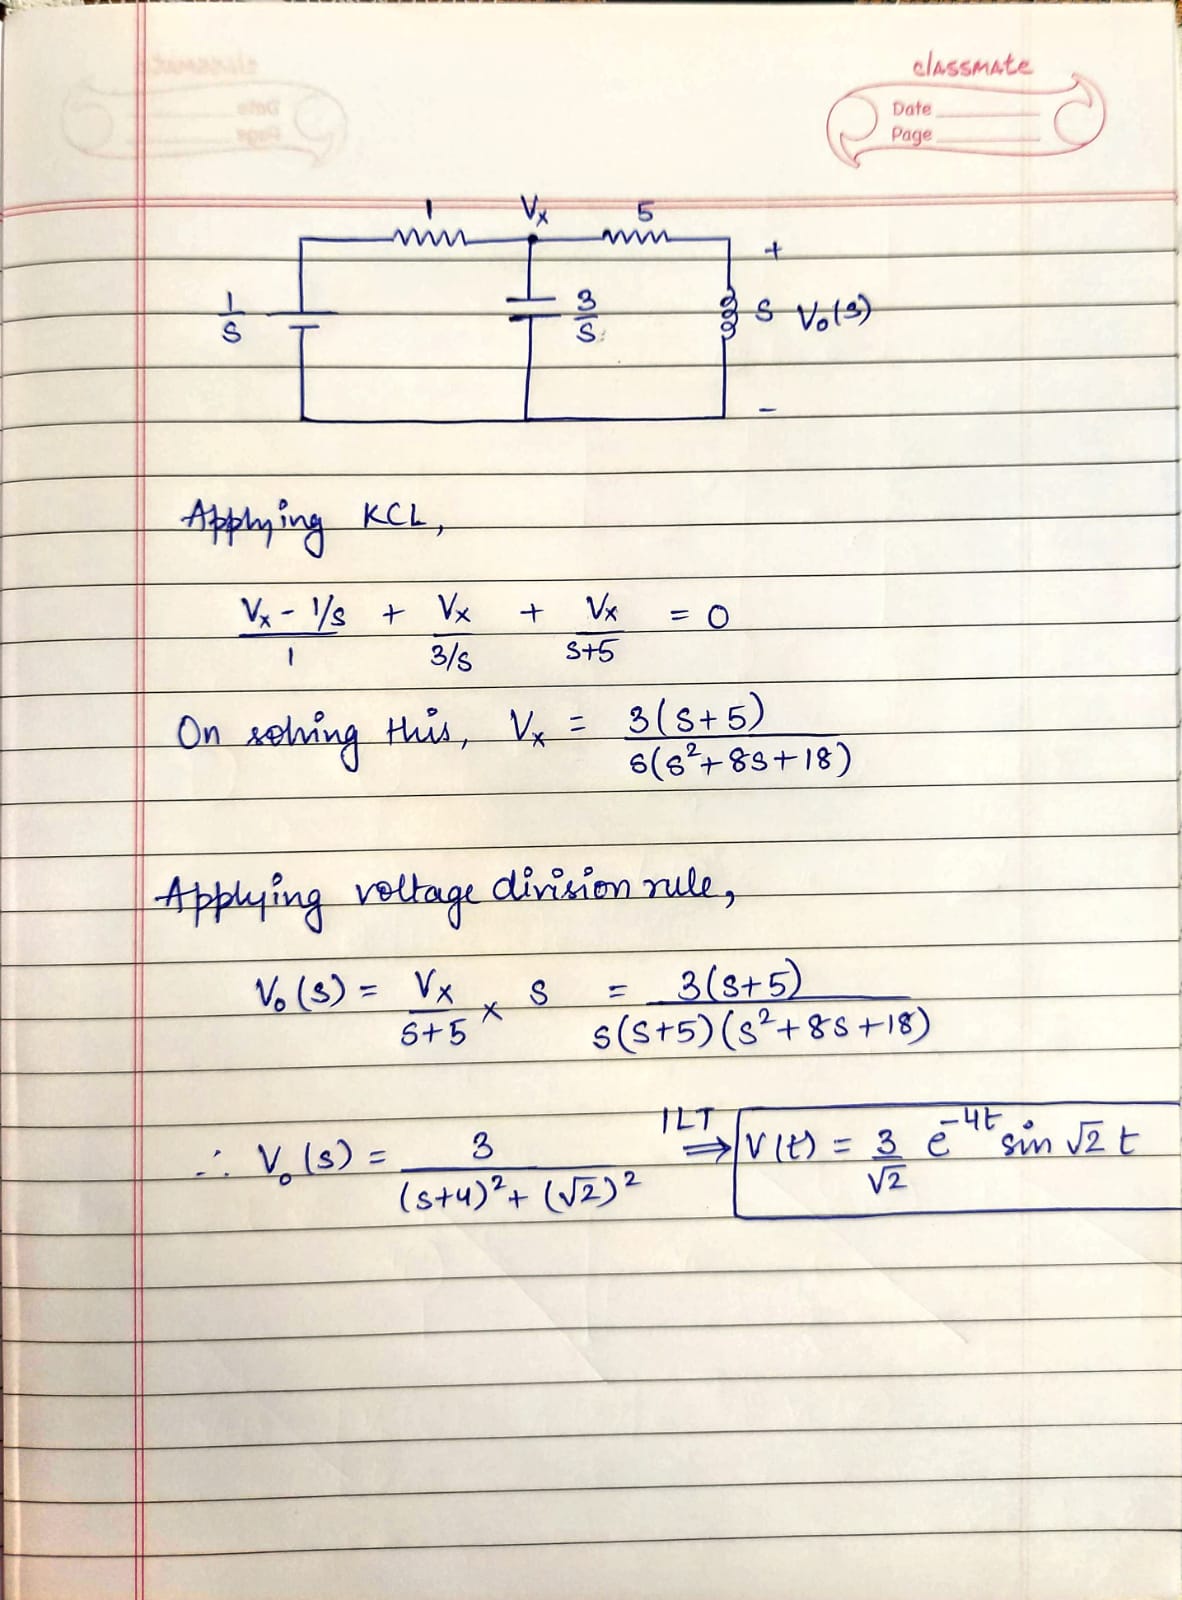 classmate
Date
Page
1 Vx 5
+
1/S 3/S S Vo(s)
-
Applying KCL,
(Vx - 1/s)/1 + Vx/(3/s) + Vx/(s+5) = 0
On solving this, Vx = 3(s+5)/(s(s²+8s+18))
Applying voltage division rule,
Vo(s) = Vx/(s+5) × s = 3(s+5)/(s(s+5)(s²+8s+18))
∴ Vo(s) = 3/((s+4)²+(√2)²) ILT ⇒ V(t) = 3/√2 e^-4t sin √2 t